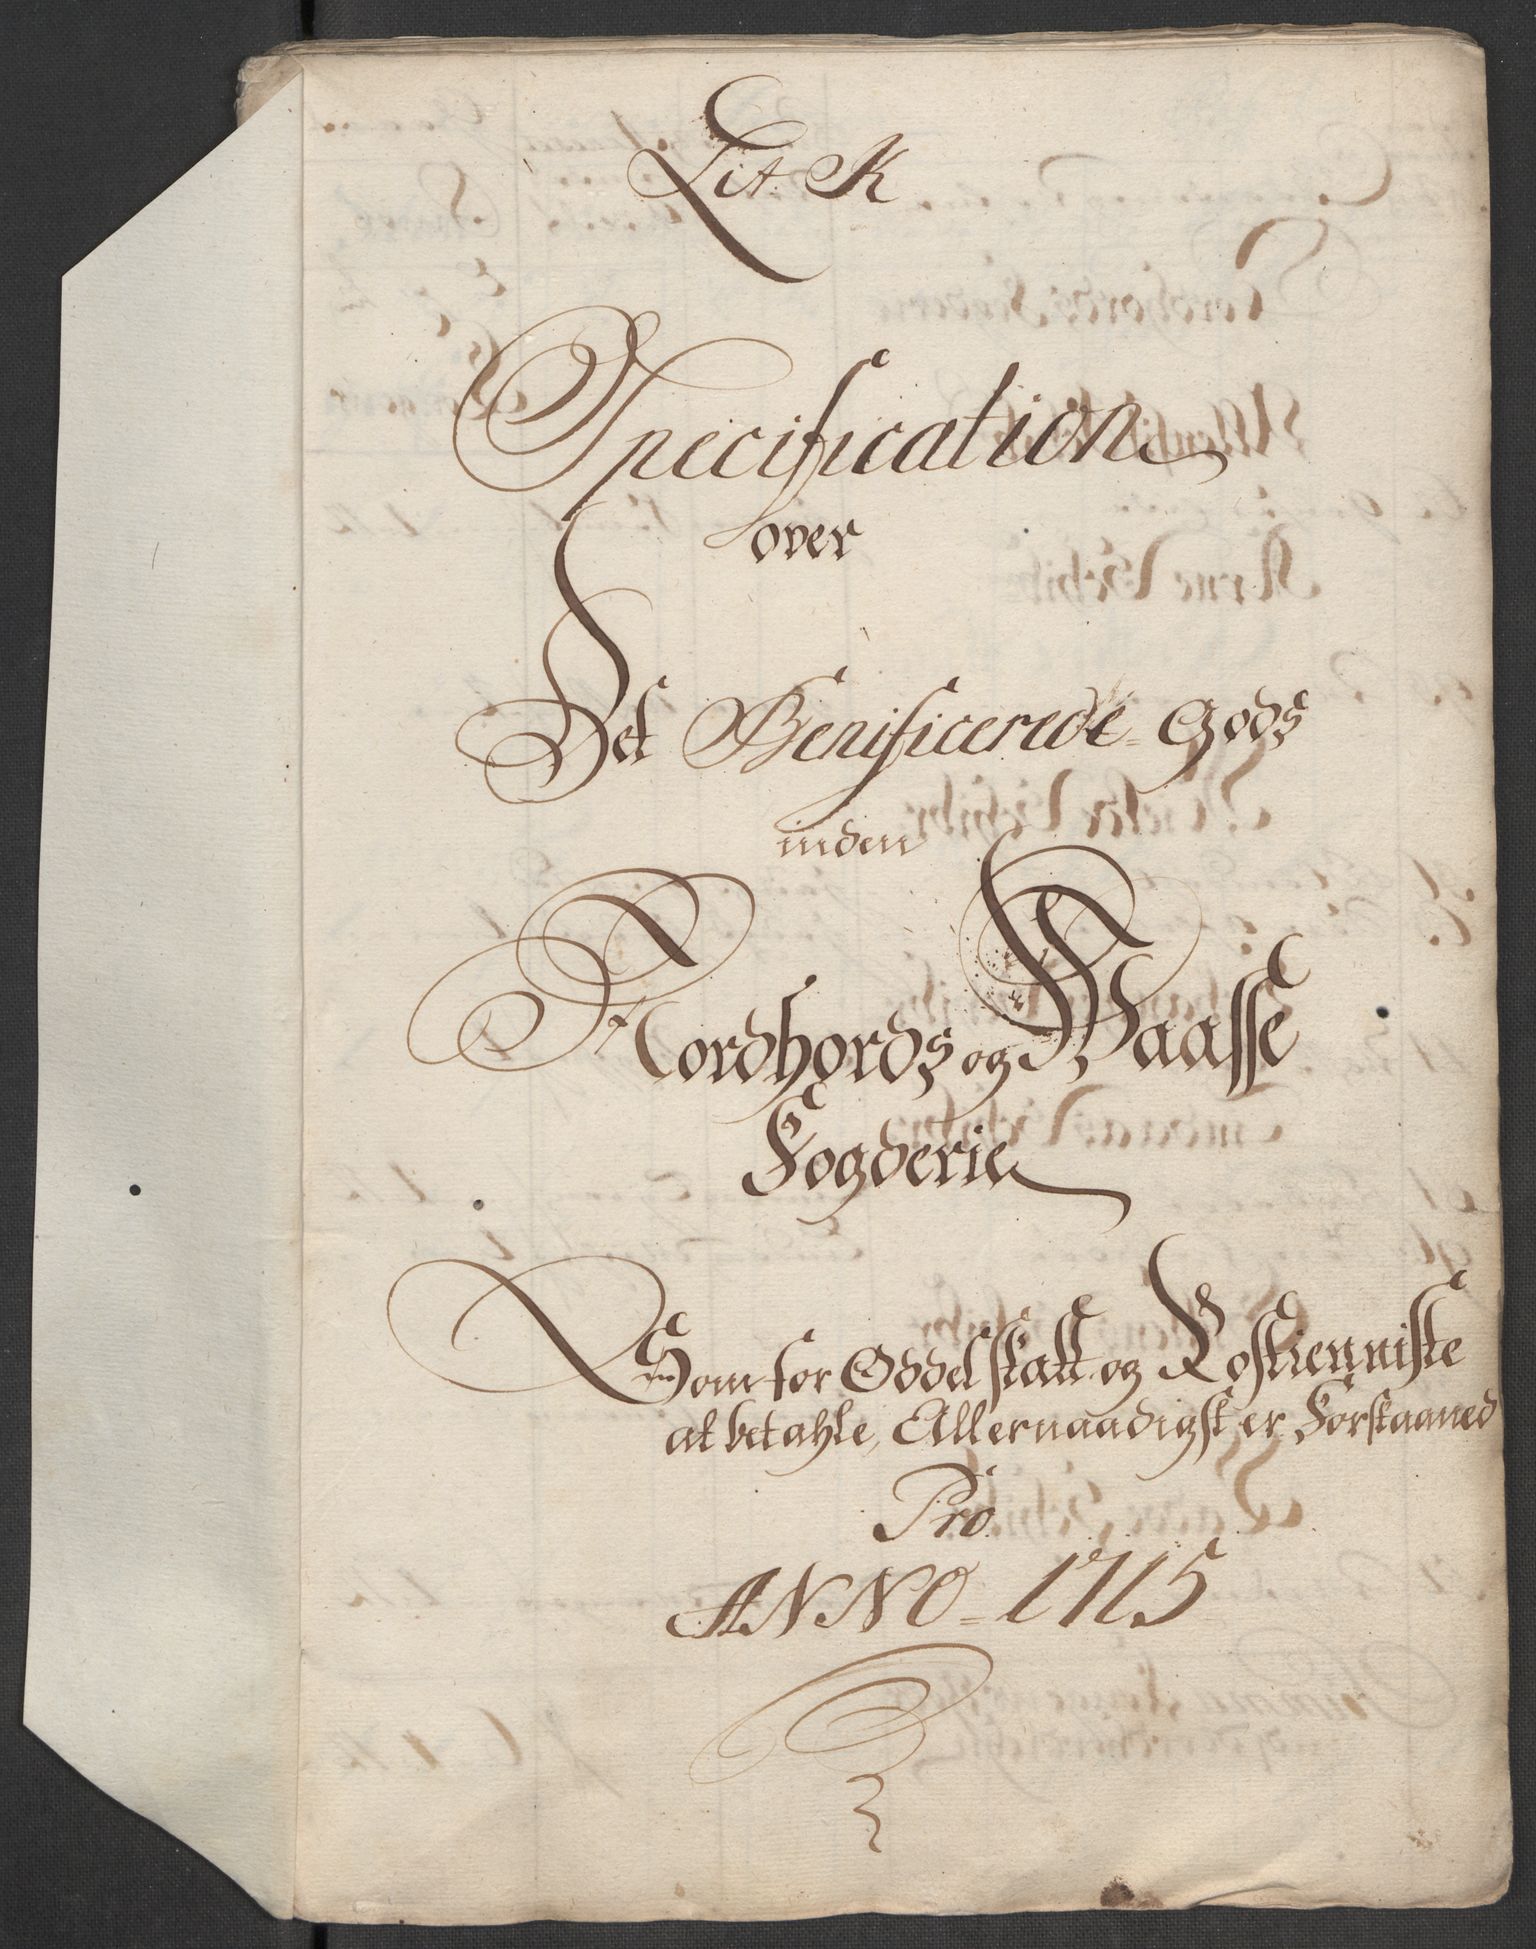 Lit. K
Specification
over
Det Benificerede Gods
inden
Nordhords og Waasse
Fogderie
Som for Oddelskatt og Rostienniste
at betahle, Allernaadigst er Forskaaned
Pro
ANNO 1715